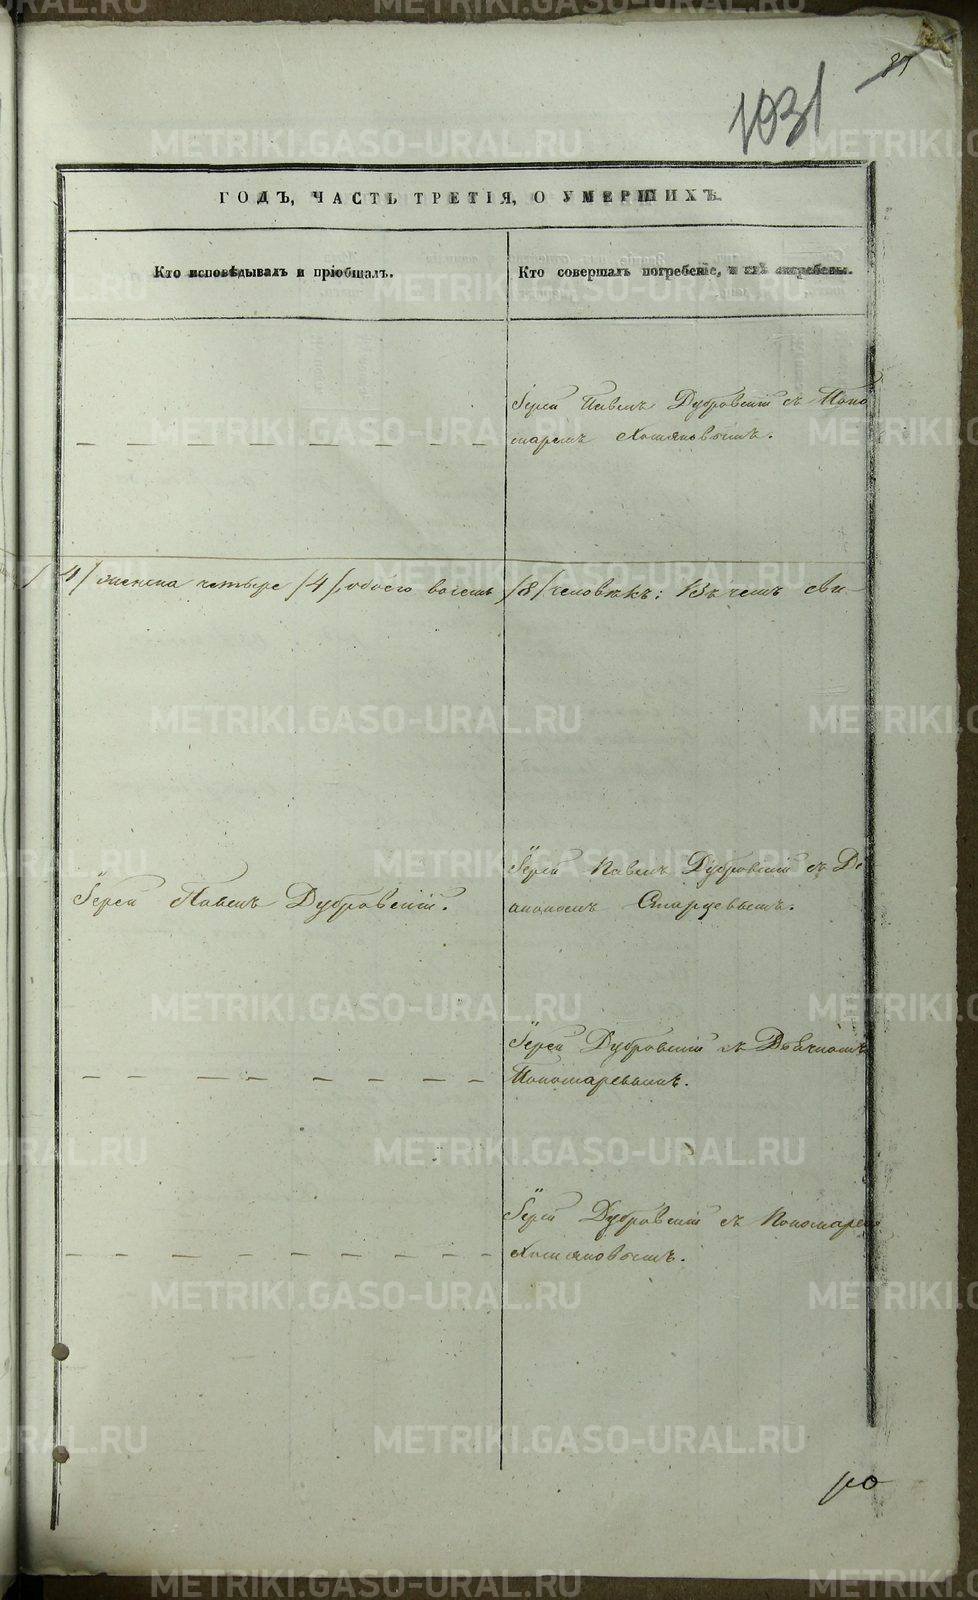 87
1031
ГОДЪ, ЧАСТЬ ТРЕТІЯ, О УМЕРШИХЪ.
Кто исповѣдывалъ и пріобщалъ.
Кто совершалъ погребеніе, и гдѣ погребены.
Іерей Павелъ Дубровскій съ Поно
маремъ Хомяковымъ.
/4/ женска четыре /4/, обоего восемь /8/ человѣкъ: Въ чемъ сви-
Іерей Павелъ Дубровскій.
Іерей Павелъ Дубровскій съ Ді
акономъ
Іерей Дубровскій съ Дьячкомъ
Пономаревымъ.
Іерей Дубровскій съ Пономаремъ
Хомяковымъ.
METRIKI.GASO-URAL.RU